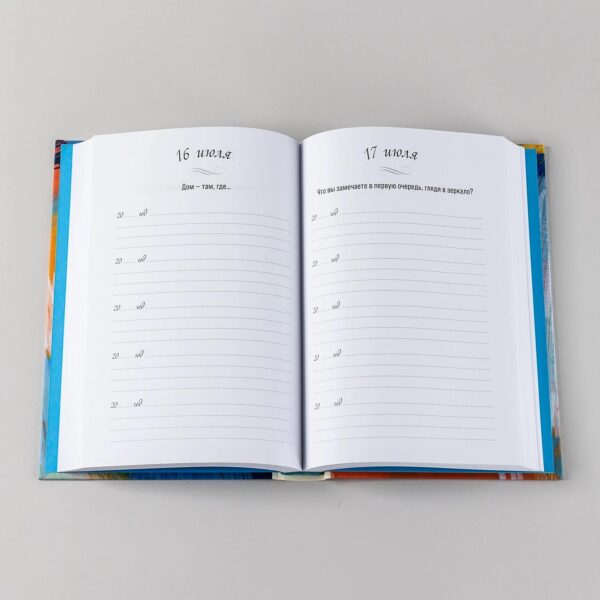 16 июля
Дом – там, где...
20 год
20 год
20 год
20 год
20 год
17 июля
Что вы замечаете в первую очередь, глядя в зеркало?
20 год
20 год
20 год
20 год
20 год